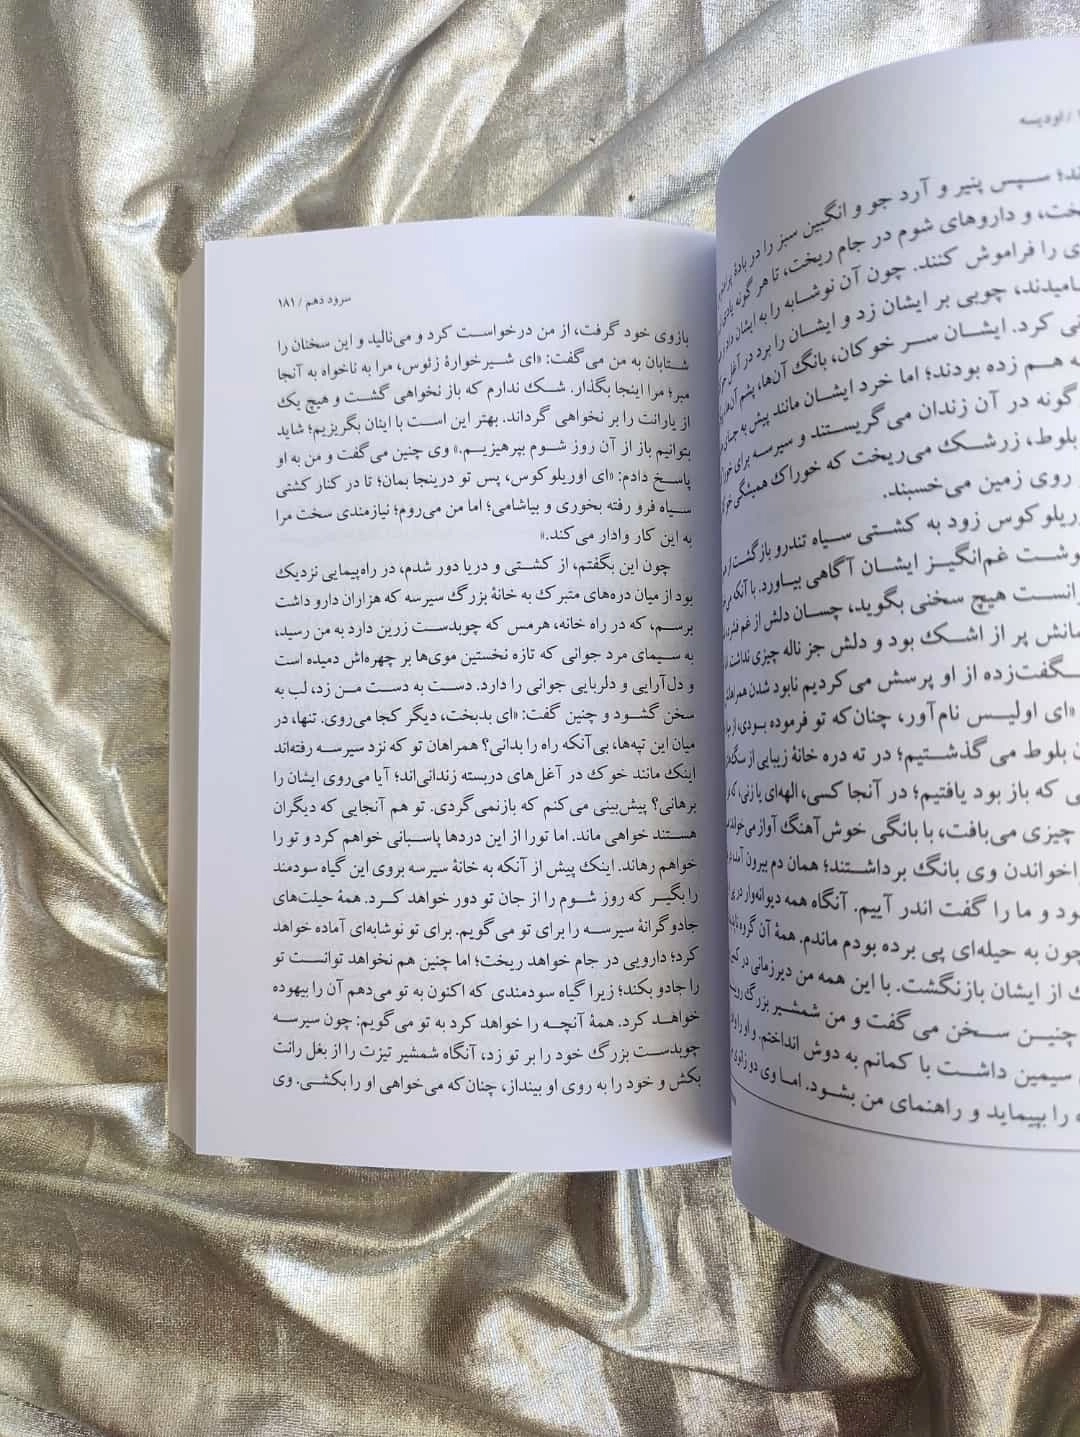 / اودیسه
ند؛ سپس پنیر و آرد جو و انگبین سبز را در بادهٔ
خت، و داروهای شوم در جام ریخت، تا هر گونه یادی
ی را فراموش کنند. چون آن نوشابه را به ایشان داد
میدند، چوبی بر ایشان زد و ایشان را برد در آغل
نی کرد. ایشان سر خوکان، بانگ آن‌ها، پشم آن‌ها
ه هم زده بودند؛ اما خرد ایشان مانند پیش به جا
گونه در آن زندان می‌گریستند و سیرسه برای
بلوط، زرشک می‌ریخت که خوراک همیشگی
روی زمین می‌خسبند.
ریلوکوس زود به کشتی سیاه تندرو بازگشت از
وشت غم‌انگیز ایشان آگاهی بیاورد. با آنکه
انست هیچ سخنی بگوید، چسان دلش از غم
مانش پر از اشک بود و دلش جز ناله چیزی نداشت
گفت‌زده از او پرسش می‌کردیم نابود شدن همراهان
«ای اولیس نام‌آور، چنان‌که تو فرموده بودی، از
ن بلوط می‌گذشتیم؛ در ته دره خانهٔ زیبایی از
ی که باز بود یافتیم؛ در آنجا کسی، الهه‌ای یا زنی، که
چیزی می‌بافت، با بانگی خوش‌آهنگ آواز می‌خواند
اخواندن وی بانگ برداشتند؛ همان دم بیرون آمد
ود و ما را گفت اندر آییم. آنگاه همه دیوانه‌وار در پی
چون به حیله‌ای پی برده بودم ماندم. همهٔ آن گروه
ک از ایشان بازنگشت. با این همه من دیرزمانی در
چنین سخن می‌گفت و من شمشیر بزرگ
سیمین داشت با کمانم به دوش انداختم. و او را
ه را بپیماید و راهنمای من بشود. اما وی دو زانوی
سرود دهم / ۱۸۱
بازوی خود گرفت، از من درخواست کرد و می‌نالید و این سخنان را
شتابان به من می‌گفت: «ای شیرخوارهٔ زئوس، مرا به ناخواه به آنجا
مبر؛ مرا اینجا بگذار. شک ندارم که باز نخواهی گشت و هیچ یک
از یارانت را بر نخواهی گرداند. بهتر این است با اینان بگریزیم؛ شاید
بتوانیم باز از آن روز شوم بپرهیزیم.» وی چنین می‌گفت و من به او
پاسخ دادم: «ای اوریلوکوس، پس تو درینجا بمان؛ تا در کنار کشتی
سیاه فرو رفته بخوری و بیاشامی؛ اما من می‌روم؛ نیازمندی سخت مرا
به این کار وادار می‌کند.»
چون این بگفتم، از کشتی و دریا دور شدم، در راه‌پیمایی نزدیک
بود از میان دره‌های متبرک به خانهٔ بزرگ سیرسه که هزاران دارو داشت
برسم، که در راه خانه، هرمس که چوبدست زرین دارد به من رسید،
به سیمای مرد جوانی که تازه نخستین موی‌ها بر چهره‌اش دمیده است
و دل‌آرایی و دلربایی جوانی را دارد. دست به دست من زد، لب به
سخن گشود و چنین گفت: «ای بدبخت، دیگر کجا می‌روی. تنها، در
میان این تپه‌ها، بی‌آنکه راه را بدانی؟ همراهان تو که نزد سیرسه رفته‌اند
اینک مانند خوک در آغل‌های دربسته زندانی‌اند؛ آیا می‌روی ایشان را
برهانی؟ پیش‌بینی می‌کنم که بازنمی‌گردی. تو هم آنجایی که دیگران
هستند خواهی ماند. اما تورا از این دردها پاسبانی خواهم کرد و تو را
خواهم رهاند. اینک پیش از آنکه به خانهٔ سیرسه بروی این گیاه سودمند
را بگیر که روز شوم را از جان تو دور خواهد کرد. همهٔ حیلت‌های
جادوگرانهٔ سیرسه را برای تو می‌گویم. برای تو نوشابه‌ای آماده خواهد
کرد؛ دارویی در جام خواهد ریخت؛ اما چنین هم نخواهد توانست تو
را جادو بکند؛ زیرا گیاه سودمندی که اکنون به تو می‌دهم آن را بیهوده
خواهد کرد. همهٔ آنچه را خواهد کرد به تو می‌گویم: چون سیرسه
چوبدست بزرگ خود را بر تو زد، آنگاه شمشیر تیزت را از بغل رانت
بکش و خود را به روی او بینداز، چنان‌که می‌خواهی او را بکشی. وی